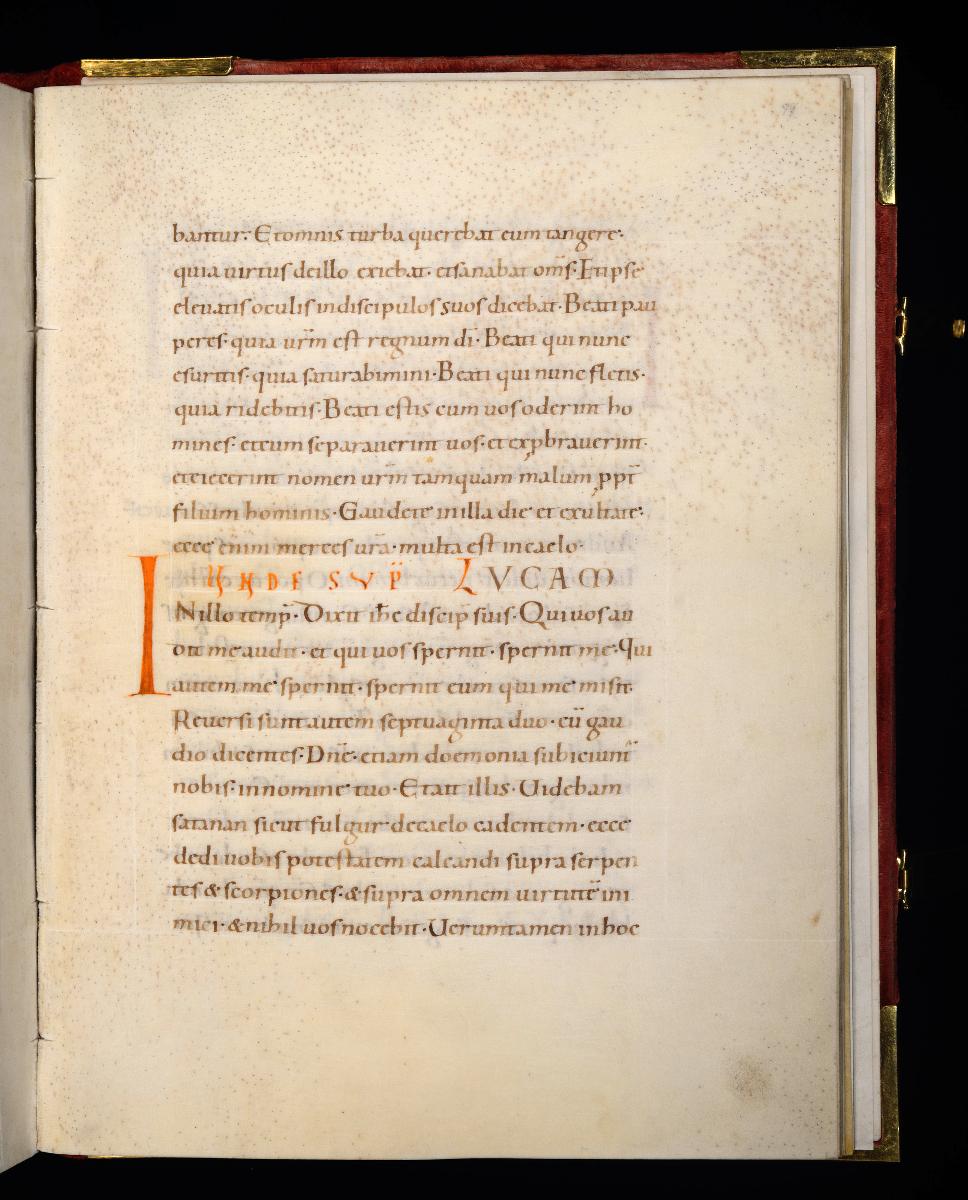 bantur. Et omnis turba querebat eum tangere.
quia uirtus deillo exiebat. etsanabat om̄s. Et ipse
eleuatis oculis indiscipulos suos dicebat. Beati pau
peres. quia ur̄m est regnum dī. Beati qui nunc
esuritis. quia saturabimini. Beati qui nunc fletis.
quia ridebitis. Beati estis cum uos oderint ho
mines. etcum separauerint uos. et expbrauerint.
eteiecerint nomen ur̄m tamquam malum ppt̄
filium hominis. Gaudete inilla die et exultate.
ecce enim merces ur̄a. multa est incaelo.
SUP̄ LUCAM
INillo temp̄. Dixit ih̄c discip̄ suis. Qui uos au
dit me audit. et qui uos spernit. spernit me. Qui
autem me spernit. spernit eum qui me misit.
Reuersi sunt autem septuaginta duo. cū gau
dio dicentes. Dn̄e. etiam doemonia subiciunt̄
nobis. innomine tuo. Et ait illis. Uidebam
satanan sicut fulgur decaelo cadentem. ecce
dedi uobis potestatem calcandi supra serpen
tes & scorpiones. & supra omnem uirtutē ini
mici. & nihil uos nocebit. Uerumtamen inhoc